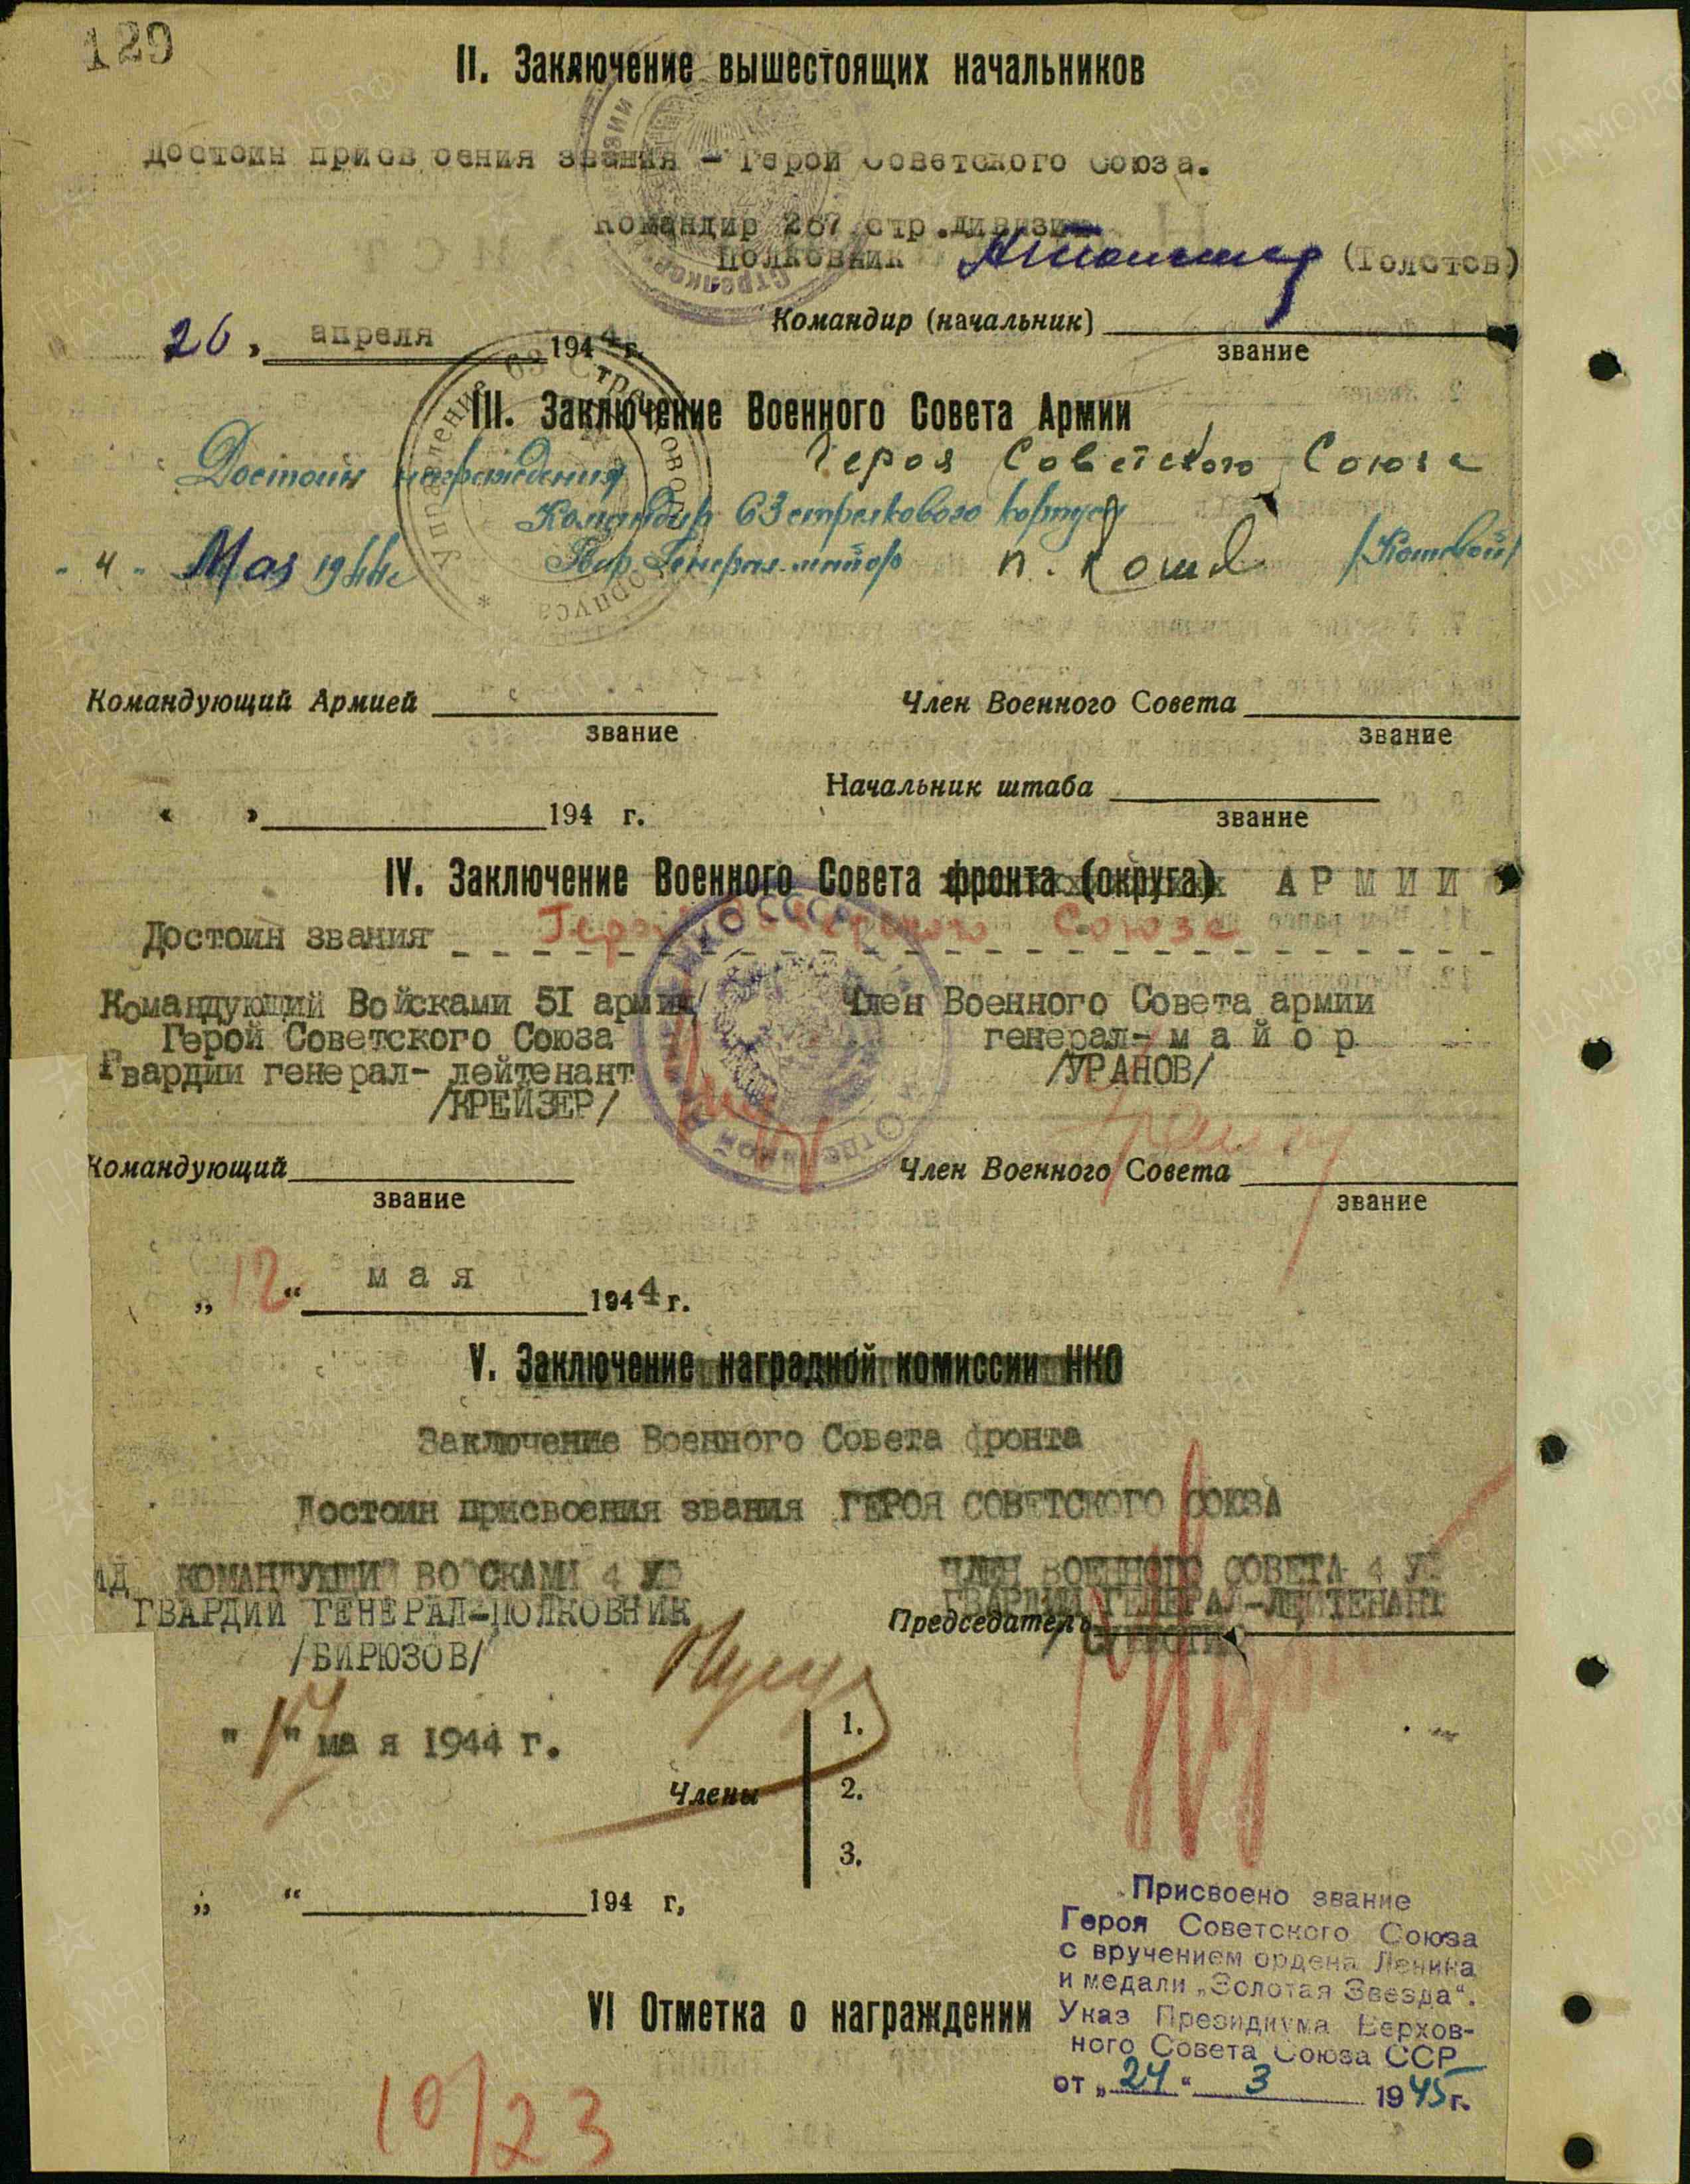 129
II. Заключение вышестоящих начальников
Достоин присвоения звания - Герой Советского Союза.
Командир 267 стр.дивизии
Полковник (Толстов)
26 апреля 1944 г.
Командир (начальник)
звание
III. Заключение Военного Совета Армии
Достоин награждения Героя Советского Союза
Командир 63 стрелкового корпуса
Гвар. Генерал-майор П. Кошевой /Кошевой/
"4" Мая 1944г
Командующий Армией
звание
Член Военного Совета
звание
Начальник штаба
звание
« » 194 г.
IV. Заключение Военного Совета фронта (округа) АРМИИ
Достоин звания Героя Советского Союза
Командующий Войсками 51 армии
Герой Советского Союза
Гвардии генерал-лейтенант
/КРЕЙЗЕР/
Член Военного Совета армии
генерал-майор
/УРАНОВ/
Командующий
звание
Член Военного Совета
звание
„12“ мая 1944 г.
V. Заключение наградной комиссии НКО
Заключение Военного Совета фронта
Достоин присвоения звания ГЕРОЯ СОВЕТСКОГО СОЮЗА
КОМАНДУЮЩИЙ ВОЙСКАМИ 4 УФ
ГВАРДИИ ГЕНЕРАЛ-ПОЛКОВНИК
/БИРЮЗОВ/
ЧЛЕН ВОЕННОГО СОВЕТА 4 УФ
ГВАРДИИ ГЕНЕРАЛ-ЛЕЙТЕНАНТ
Председатель
"17" мая 1944 г.
Члены
1.
2.
3.
„ “ 194 г,
VI Отметка о награждении
Присвоено звание
Героя Советского Союза
с вручением ордена Ленина
и медали „Золотая Звезда“.
Указ Президиума Верхов-
ного Совета Союза ССР
от „24“ 3 1945 г.
10/23